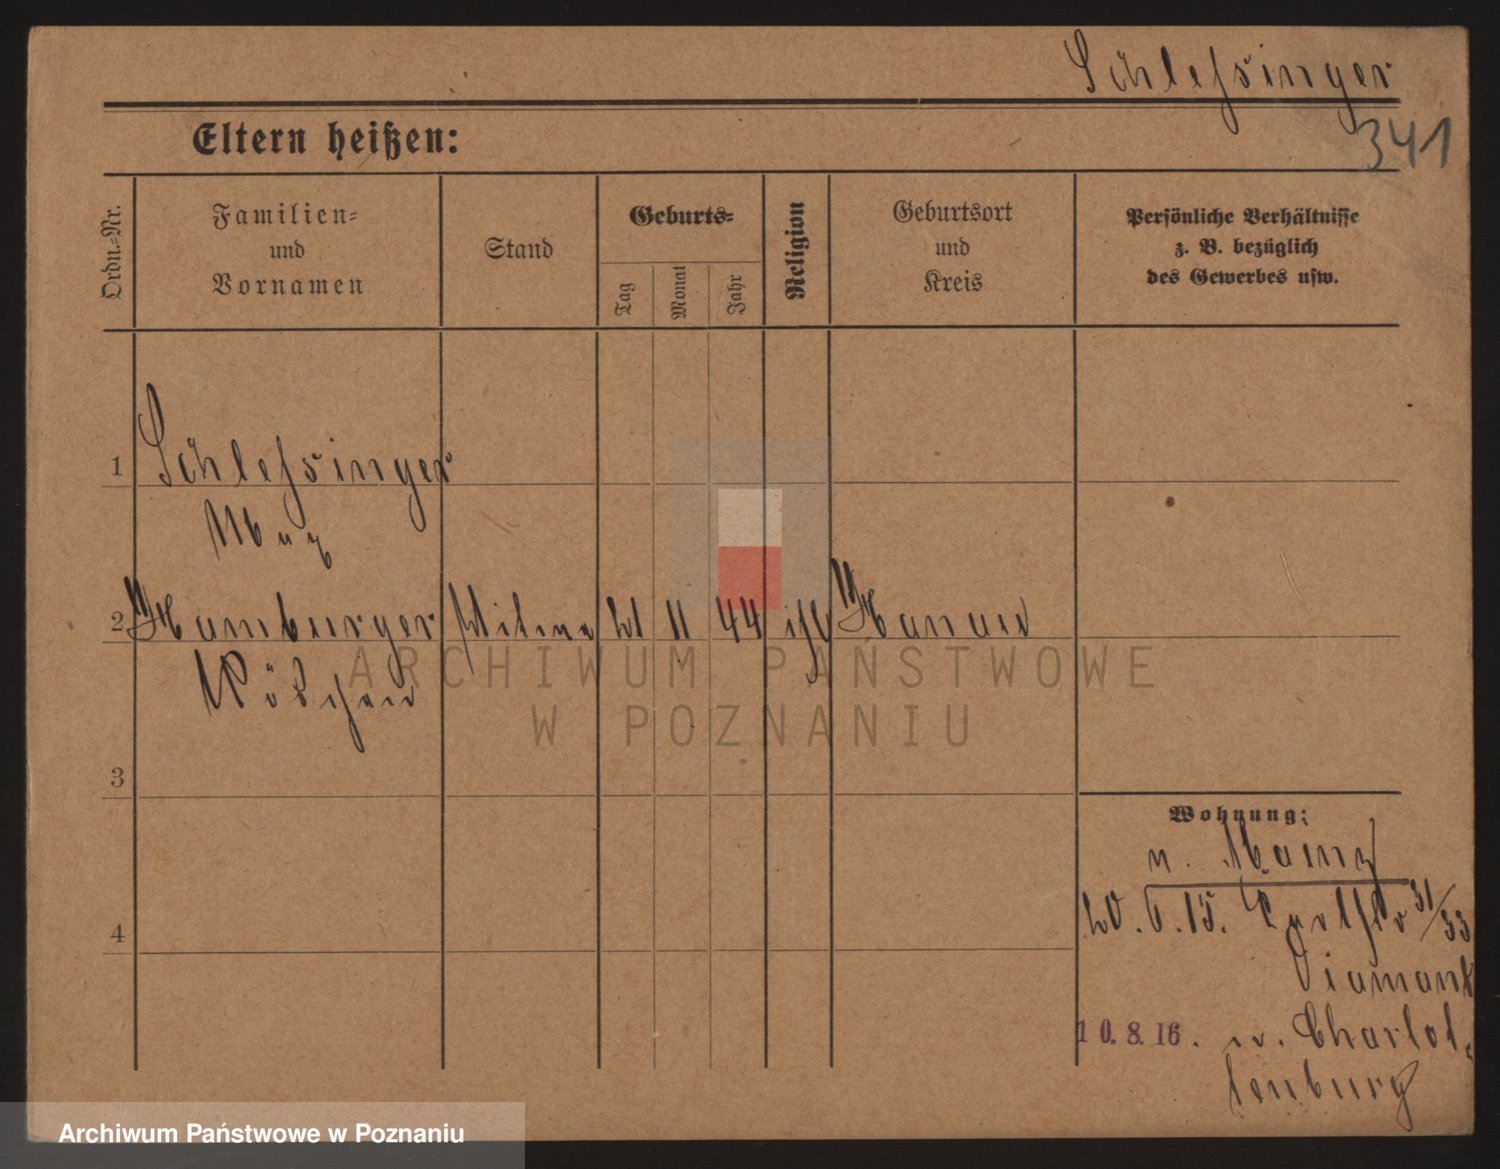 Schlessinger
341
Eltern heißen:
Ordn.-Nr.
Familien-
und
Vornamen
Stand
Geburts-
Tag
Monat
Jahr
Religion
Geburtsort
und
Kreis
Persönliche Verhältnisse
z. B. bezüglich
des Gewerbes usw.
1
Schlessinger
Max
2
Hamburger
Witwe
11
44
isr
Hanau
Röschen
3
4
Wohnung:
n. Mainz
20. 6. 15.
31/33
Diamant
10. 8. 16. n. Charlot-
tenburg
ARCHIWUM PAŃSTWOWE
W POZNANIU
Archiwum Państwowe w Poznaniu